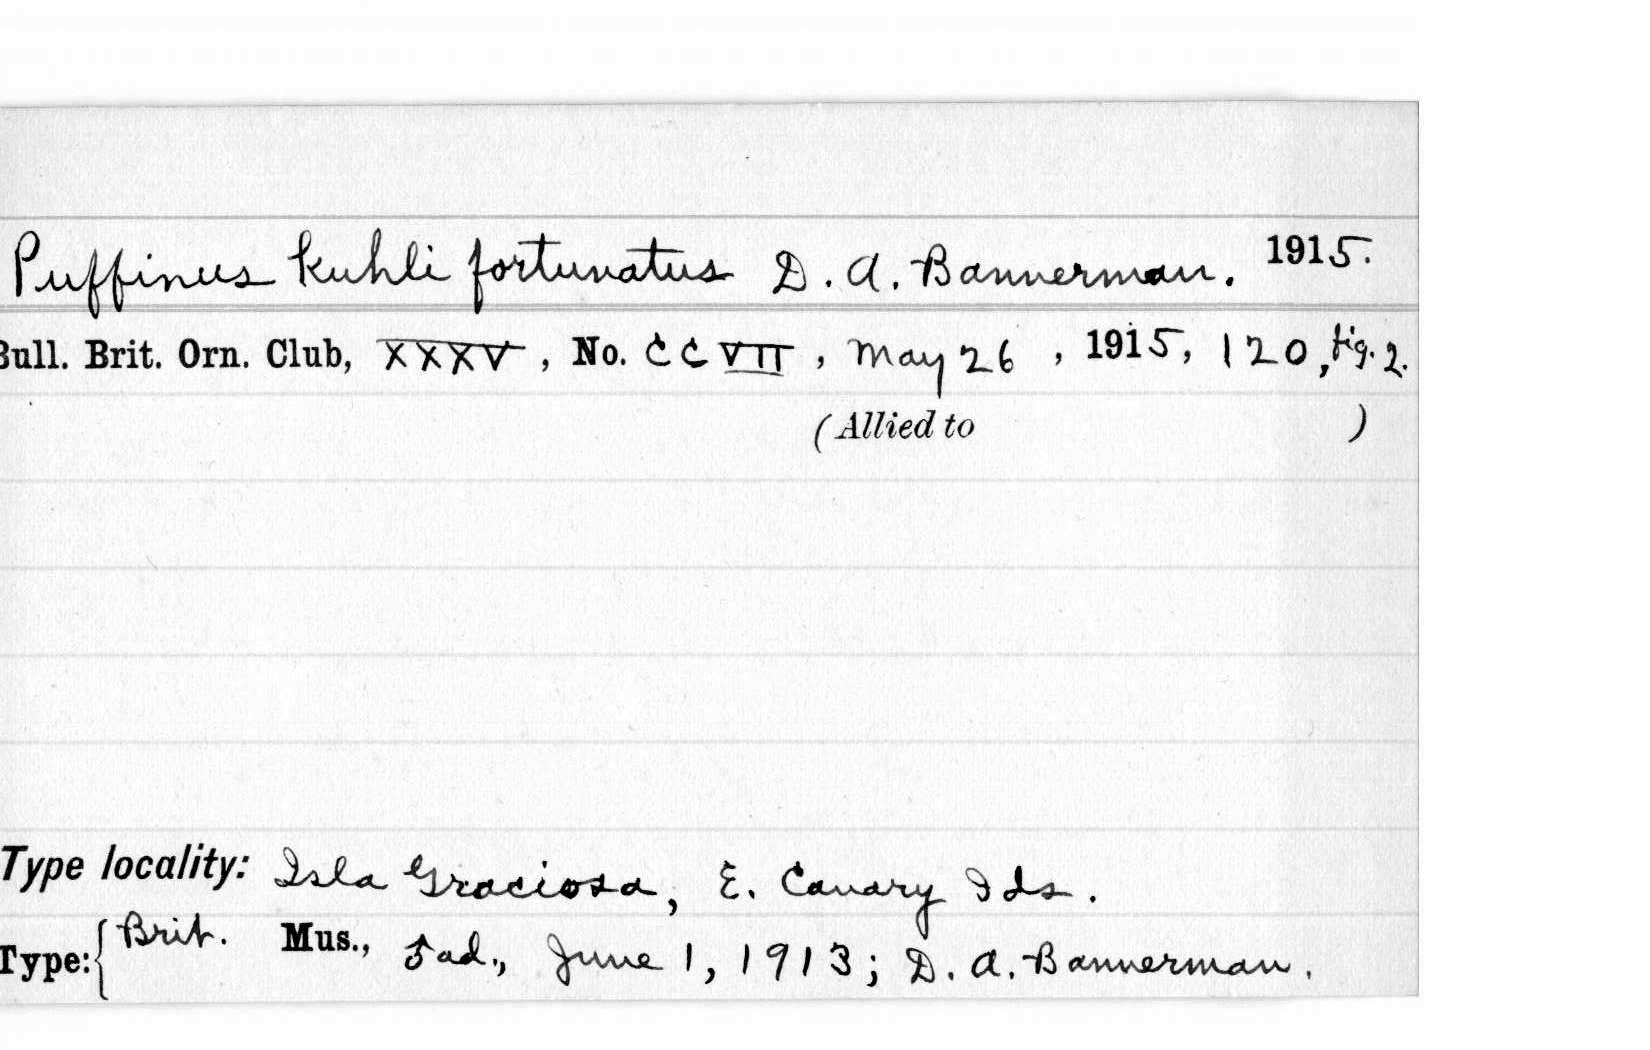 Puffinus kuhli fortunatus D. A. Bannerman. 1915.
Bull. Brit. Orn. Club, XXXV, No. CCVII, May 26, 1915, 120, fig. 2.
(Allied to )
Type locality: Isla Graciosa, E. Canary Ids.
Type: { Brit. Mus., ad., June 1, 1913; D. A. Bannerman.